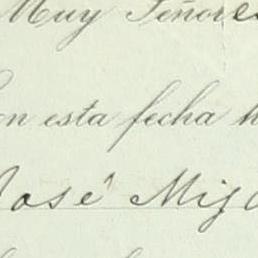 Muy Señores
en esta fecha h
José Mig